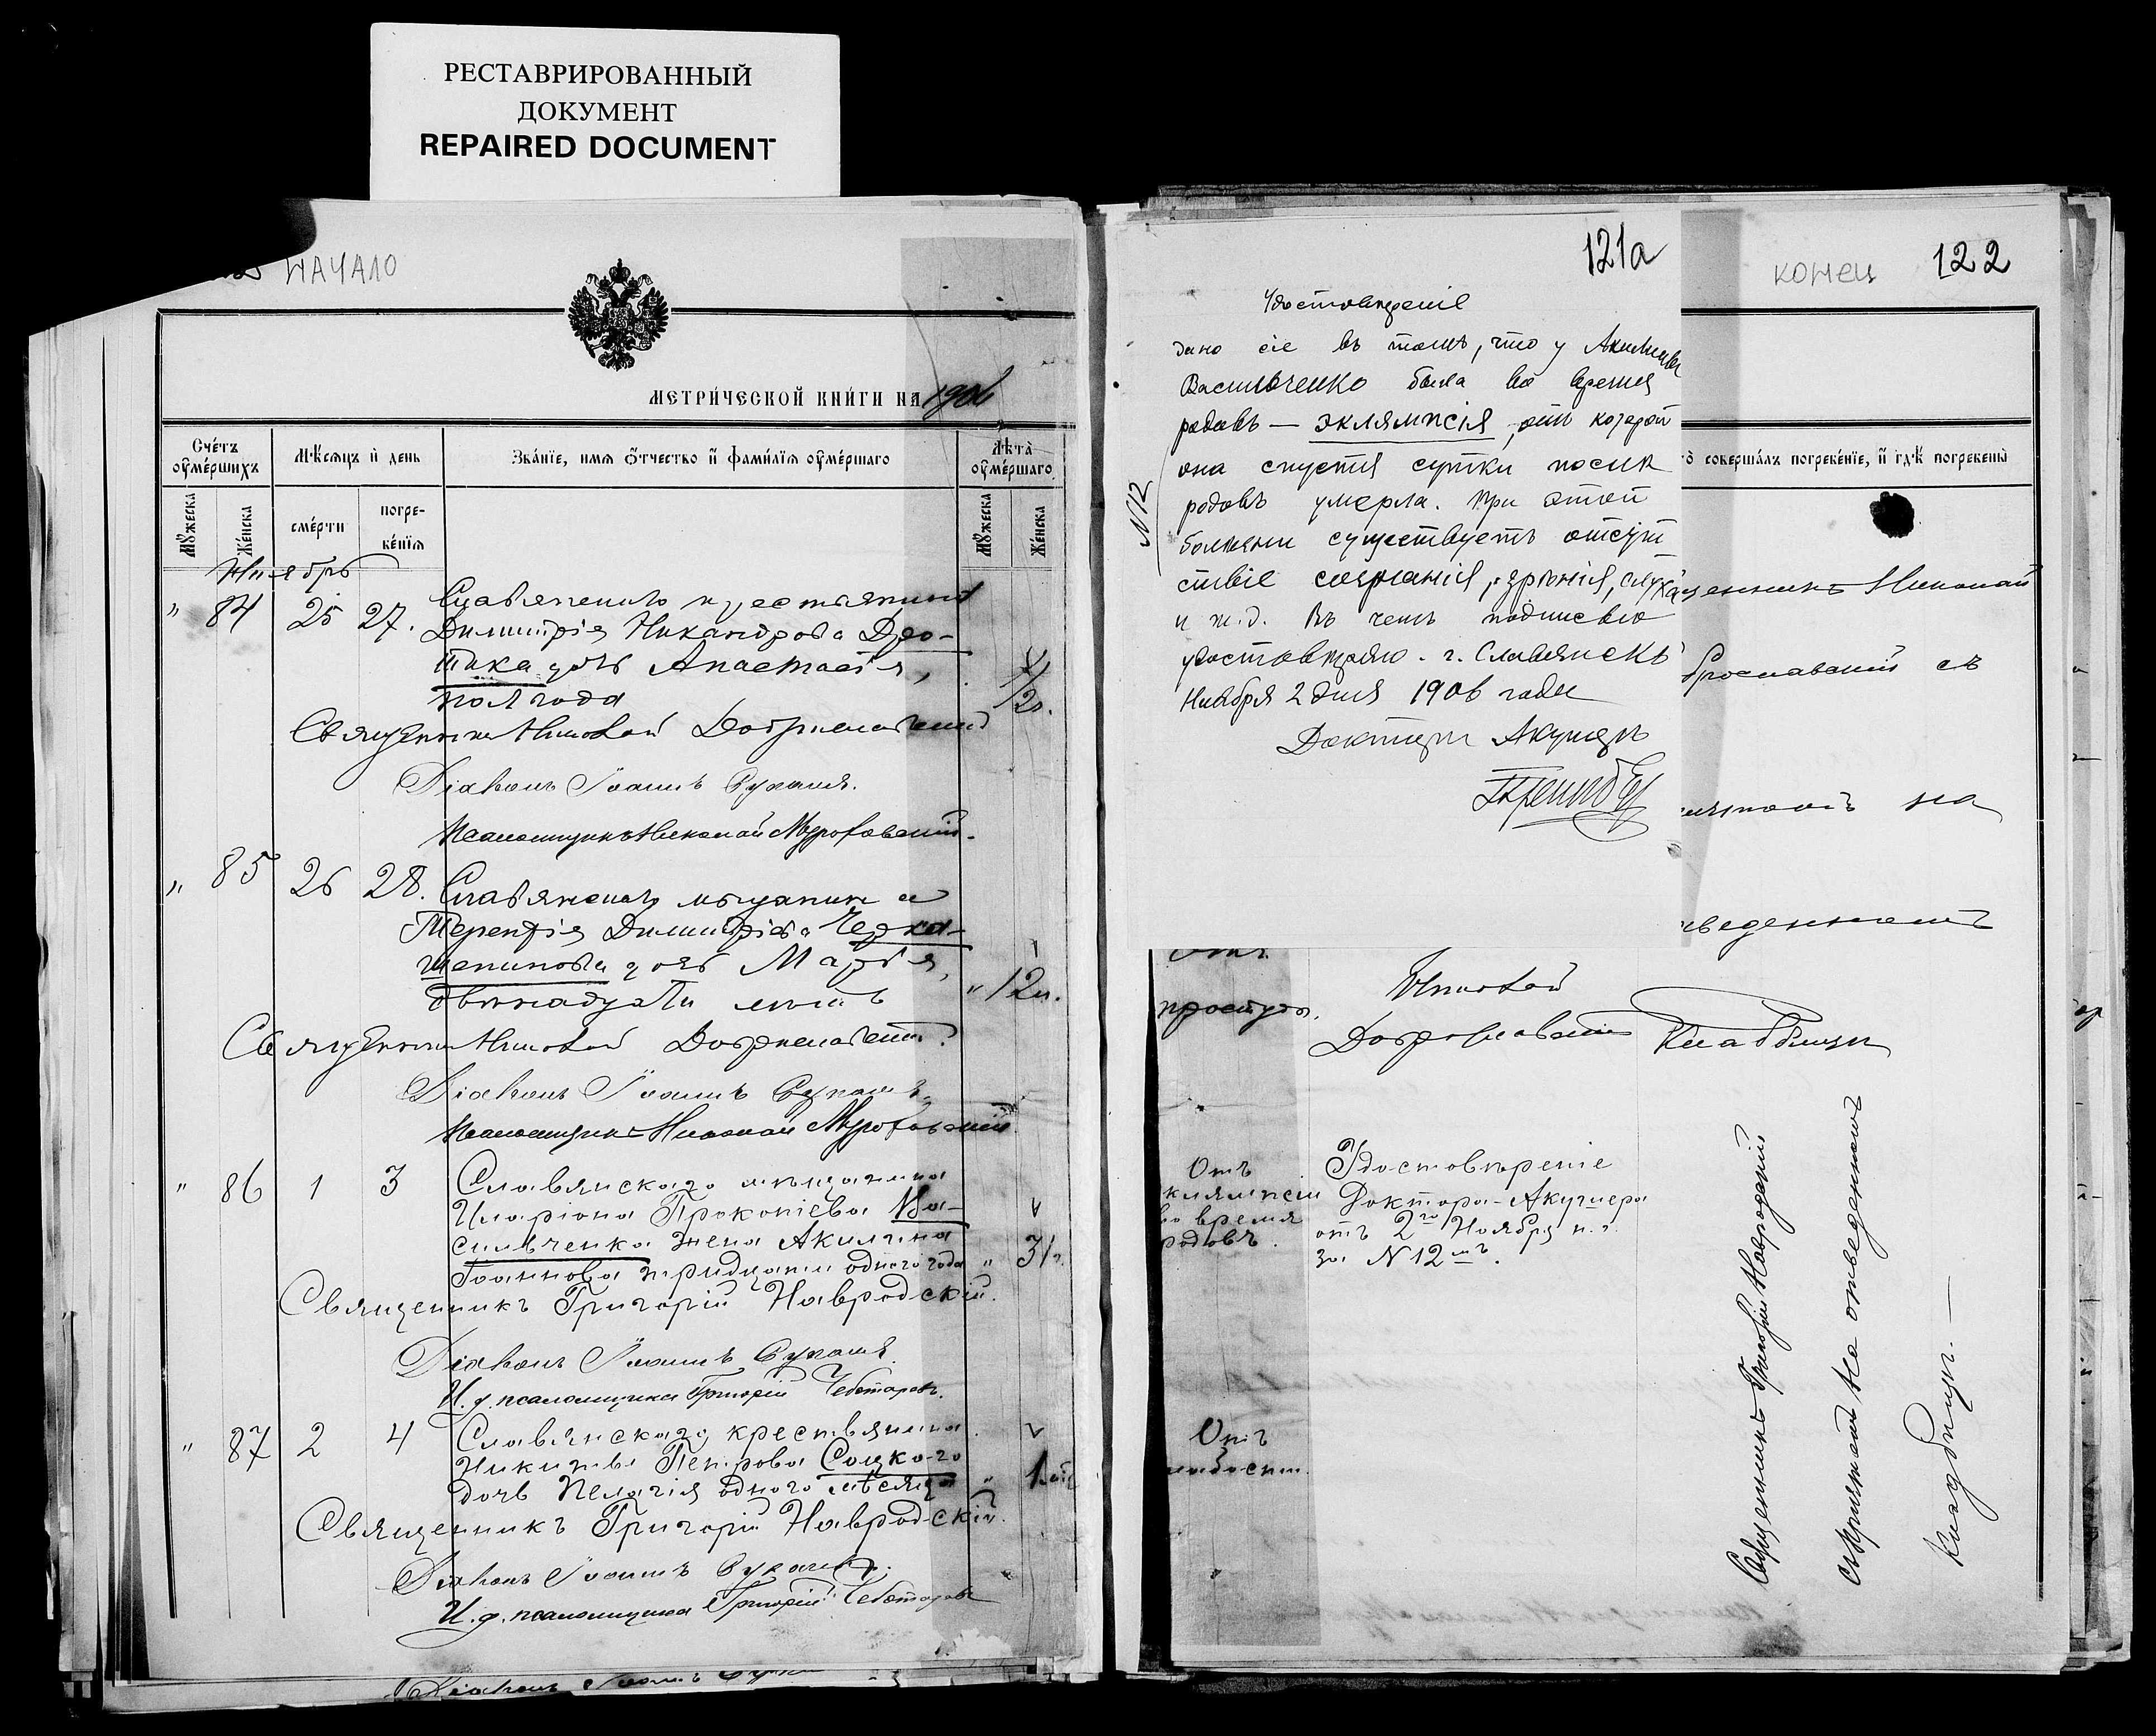 РЕСТАВРИРОВАННЫЙ
ДОКУМЕНТ
REPAIRED DOCUMENT
НАЧАЛО
МЕТРИ́ЧЕСКОЙ КНИ́ГИ НА 1906
Сче́тъ ᲂу҆ме́ршихъ
Мѣ́сѧцъ и҆ день
Зва́нїе, и҆мѧ ѻ҆́тчество и҆ фами́лїѧ ᲂу҆ме́ршаго
Лѣ́та ᲂу҆ме́ршаго
Мꙋ́жеска
Же́нска
сме́рти
погре-
бе́нїѧ
Мꙋ́жеска
Же́нска
Ноябрь
" 84 25 27. Славянскаго крестьянина
Димитрія Никандрова Дро-
дочь Анастасія,
полгода 1/2 г.
Священникъ Николай Доброславскій
Діаконъ Іоаннъ
Псаломщикъ Николай
" 85 26 28. Славянскаго мѣщанина
Терентія Димитріева Черка-
шенинова дочь Марія,
двѣнадцати лѣтъ " 12 л.
Священникъ Николай Доброславскій
Діаконъ Іоаннъ
Псаломщикъ Николай
" 86 1 3 Славянскаго мѣщанина
Иларіона Прокопіева Ва-
сильченка жена Акилина
Іоаннова тридцати одного года " 31 г.
Священникъ Григорій Навродскій.
Діаконъ Іоаннъ
И. д. псаломщика Григорій Чеботаревъ.
" 87 2 4 Славянскаго крестьянина
Никиты Петрова Соцкаго
дочь Пелагія одного мѣсяца " 1 мѣс.
Священникъ Григорій Навродскій.
Діаконъ Іоаннъ
И. д. псаломщика Григорій Чеботаревъ
121а
Удостовѣреніе
дано сіе въ томъ, что у Акилины
Васильченко была во время
родовъ — эклямпсія, отъ которой
она спустя сутки послѣ
родовъ умерла. При этой
болѣзни существуетъ отсут
ствіе сознанія, зрѣнія, слуха
и т. д. Въ чемъ подписью
удостовѣряю. г. Славянскъ
Ноября 2 дня 1906 года
Докторъ Акушеръ
N12
конец 122
совершалъ погребе́нїе, и҆ гдѣ̀ погребены̀
Николай
брославскій съ
на
веденномъ
Отъ
простуды.
Николай
Доброславскій
Кладбищѣ
Отъ
клямпсіи
во время
родовъ.
Удостовѣреніе
Доктора-Акушера
отъ 2го Ноября н. г.
за N 12мъ.
Отъ
слабости.
Священникъ Григорій Навродскій
съ причтомъ на отведенномъ
кладбищѣ. —